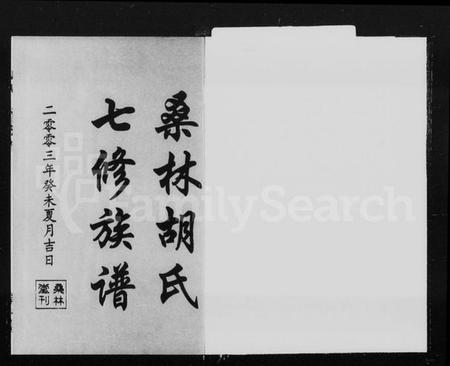 桑林胡氏
七修族谱
二零零三年癸未夏月吉日
桑林
堂刊
FamilySearch